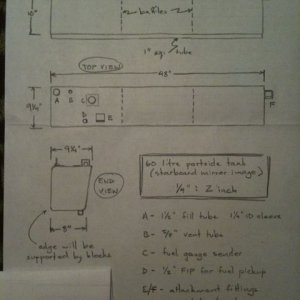 10"
baffles
1" sq. tube
TOP VIEW
48"
9¼"
A B C
D
E
F
9¼"
END VIEW
60 litre portside tank
(starboard mirror image)
¼" : 2 inch
8"
edge will be
supported by blocks
A - 1½" fill tube 1¼" ID sleeve
B - 5/8" vent tube
C - fuel gauge sender
D - ½" FIP for fuel pickup
E/F - attachment fittings